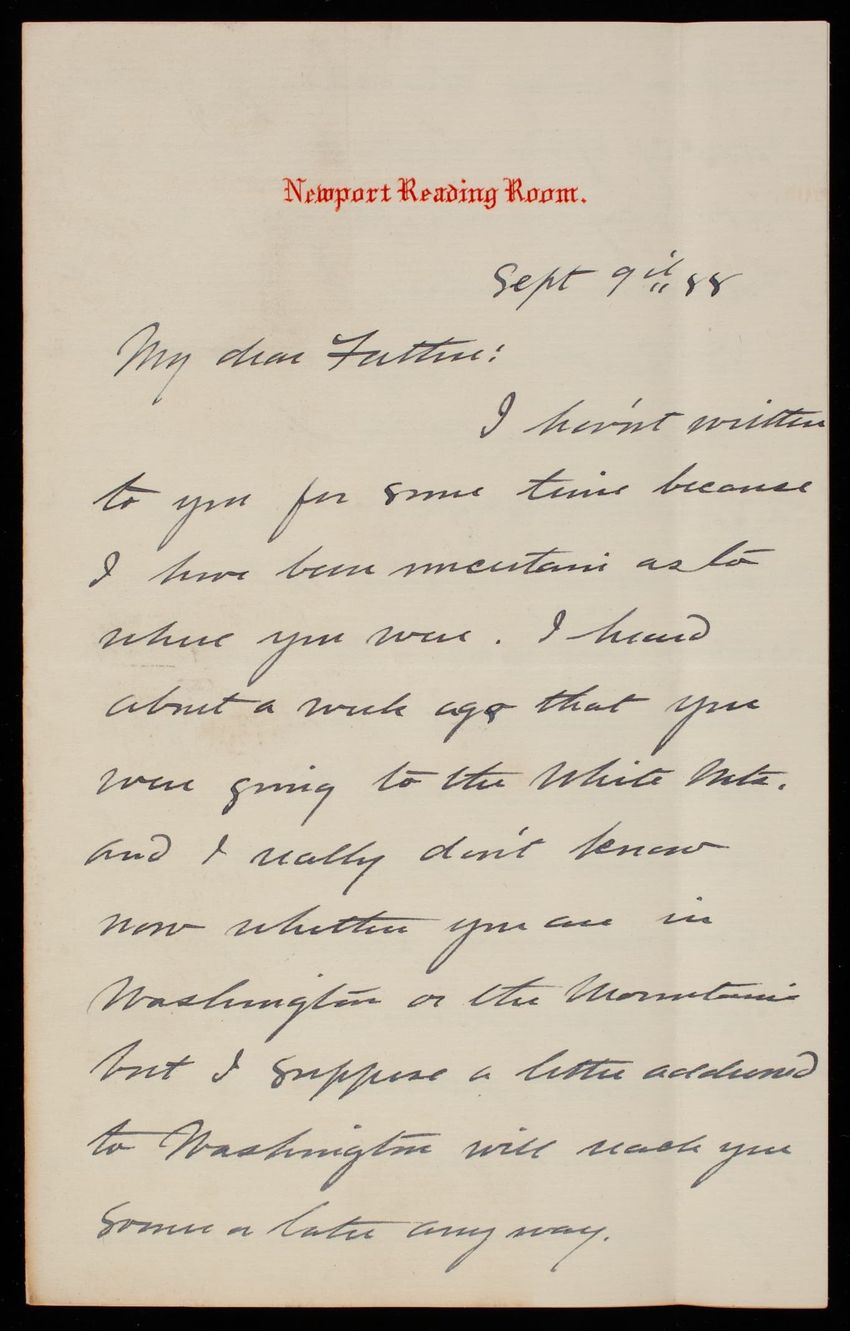 Newport Reading Room.
Sept 9th 88
My dear Father:
I hav'nt written
to you for some time because
I have been uncertain as to
where you were. I heard
about a week ago that you
were going to the White Mts.
and I really don't know
now whether you are in
Washington or the Mountains
but I suppose a letter addressed
to Washington will reach you
sooner or later any way.